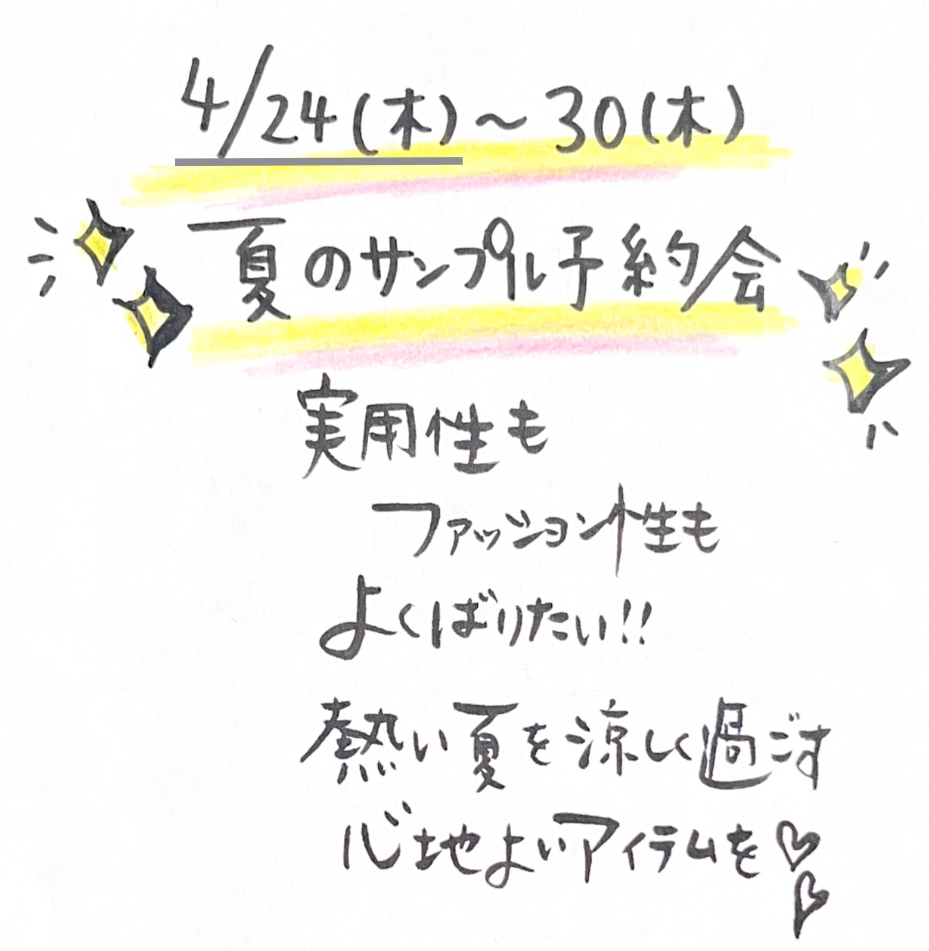 4/24(木)～30(木)
夏のサンプル予約会
実用性も
ファッション性も
よくばりたい!!
熱い夏を涼しく過ごす
心地よいアイテムを♡♡